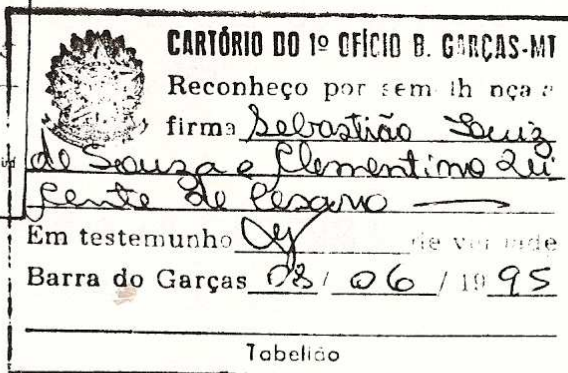 CARTÓRIO DO 1º OFÍCIO B. GARÇAS-MT
Reconheço por sem lh nça a
firma Sebastião Luiz
de Souza e Clementino Qui
de
Em testemunho de verdade
Barra do Garças 08 / 06 / 19 95
Tabelião